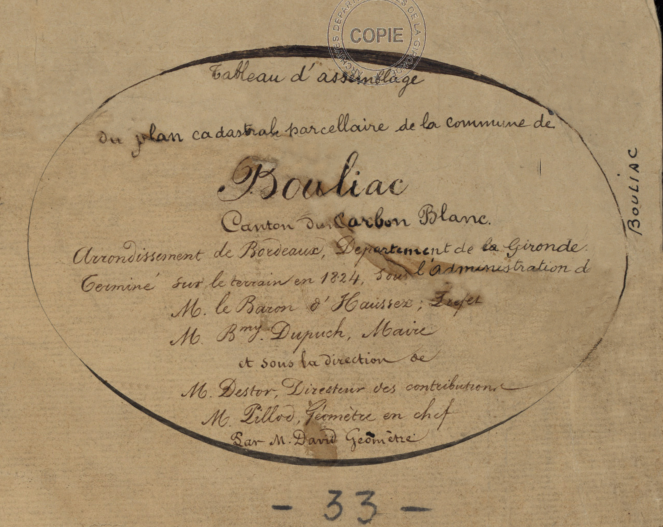 COPIE
Tableau d'assemblage
du plan cadastral parcellaire de la commune de
Bouliac
Canton du Carbon Blanc.
Arrondissement de Bordeaux, Département de la Gironde.
Terminé sur le terrain en 1824, sous l'administration d
M. le Baron d'Haussez; Préfet
M. Bmy. Dupuch, Maire
et sous la direction de
M. Destor, Directeur des contributions
M. Pillod, Géomètre en chef
Par M. David Géomètre
BOULIAC
- 33 -